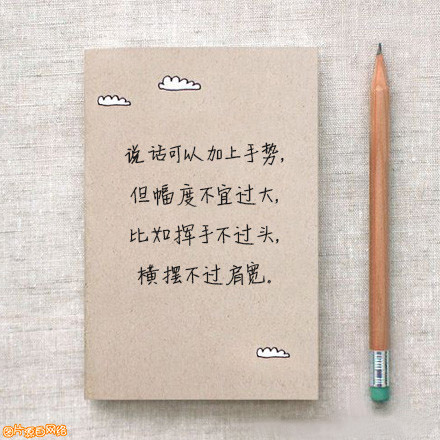 说话可以加上手势，
但幅度不宜过大，
比如挥手不过头，
横摆不过肩宽。
图片来自网络